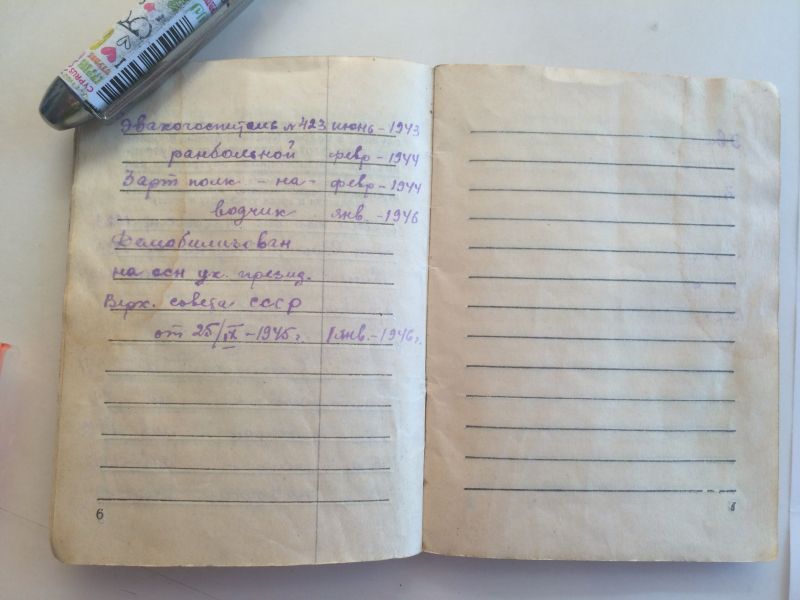 CYPRUS
Эвакогоспиталь № 423 июнь - 1943
ранбольной февр - 1944
Зарт полк - на- февр - 1944
водчик янв. - 1946
Демобилизован
на осн ук. презид.
Верх. совета СССР
от 25/IX - 1945 г. 1 янв. - 1946 г.
6